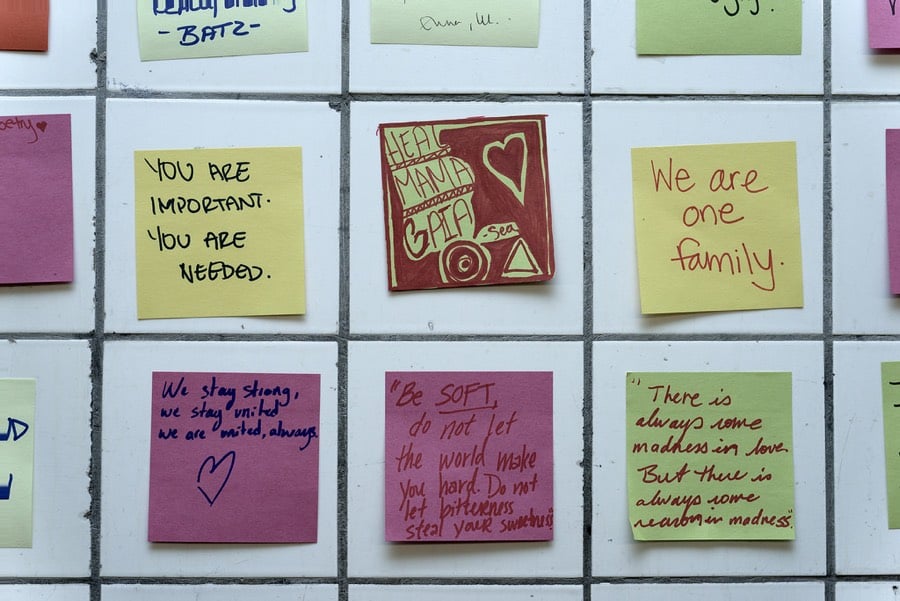 -BATZ-
poetry
YOU ARE
IMPORTANT.
YOU ARE
NEEDED.
HEAL
MAMA
GAIA
Sea
We are
one
family.
We stay strong,
we stay united
we are united, always.
"Be SOFT,
do not let
the world make
you hard. Do not
let bitterness
steal your sweetness"
"There is
always some
madness in love.
But there is
always some
reason in madness".